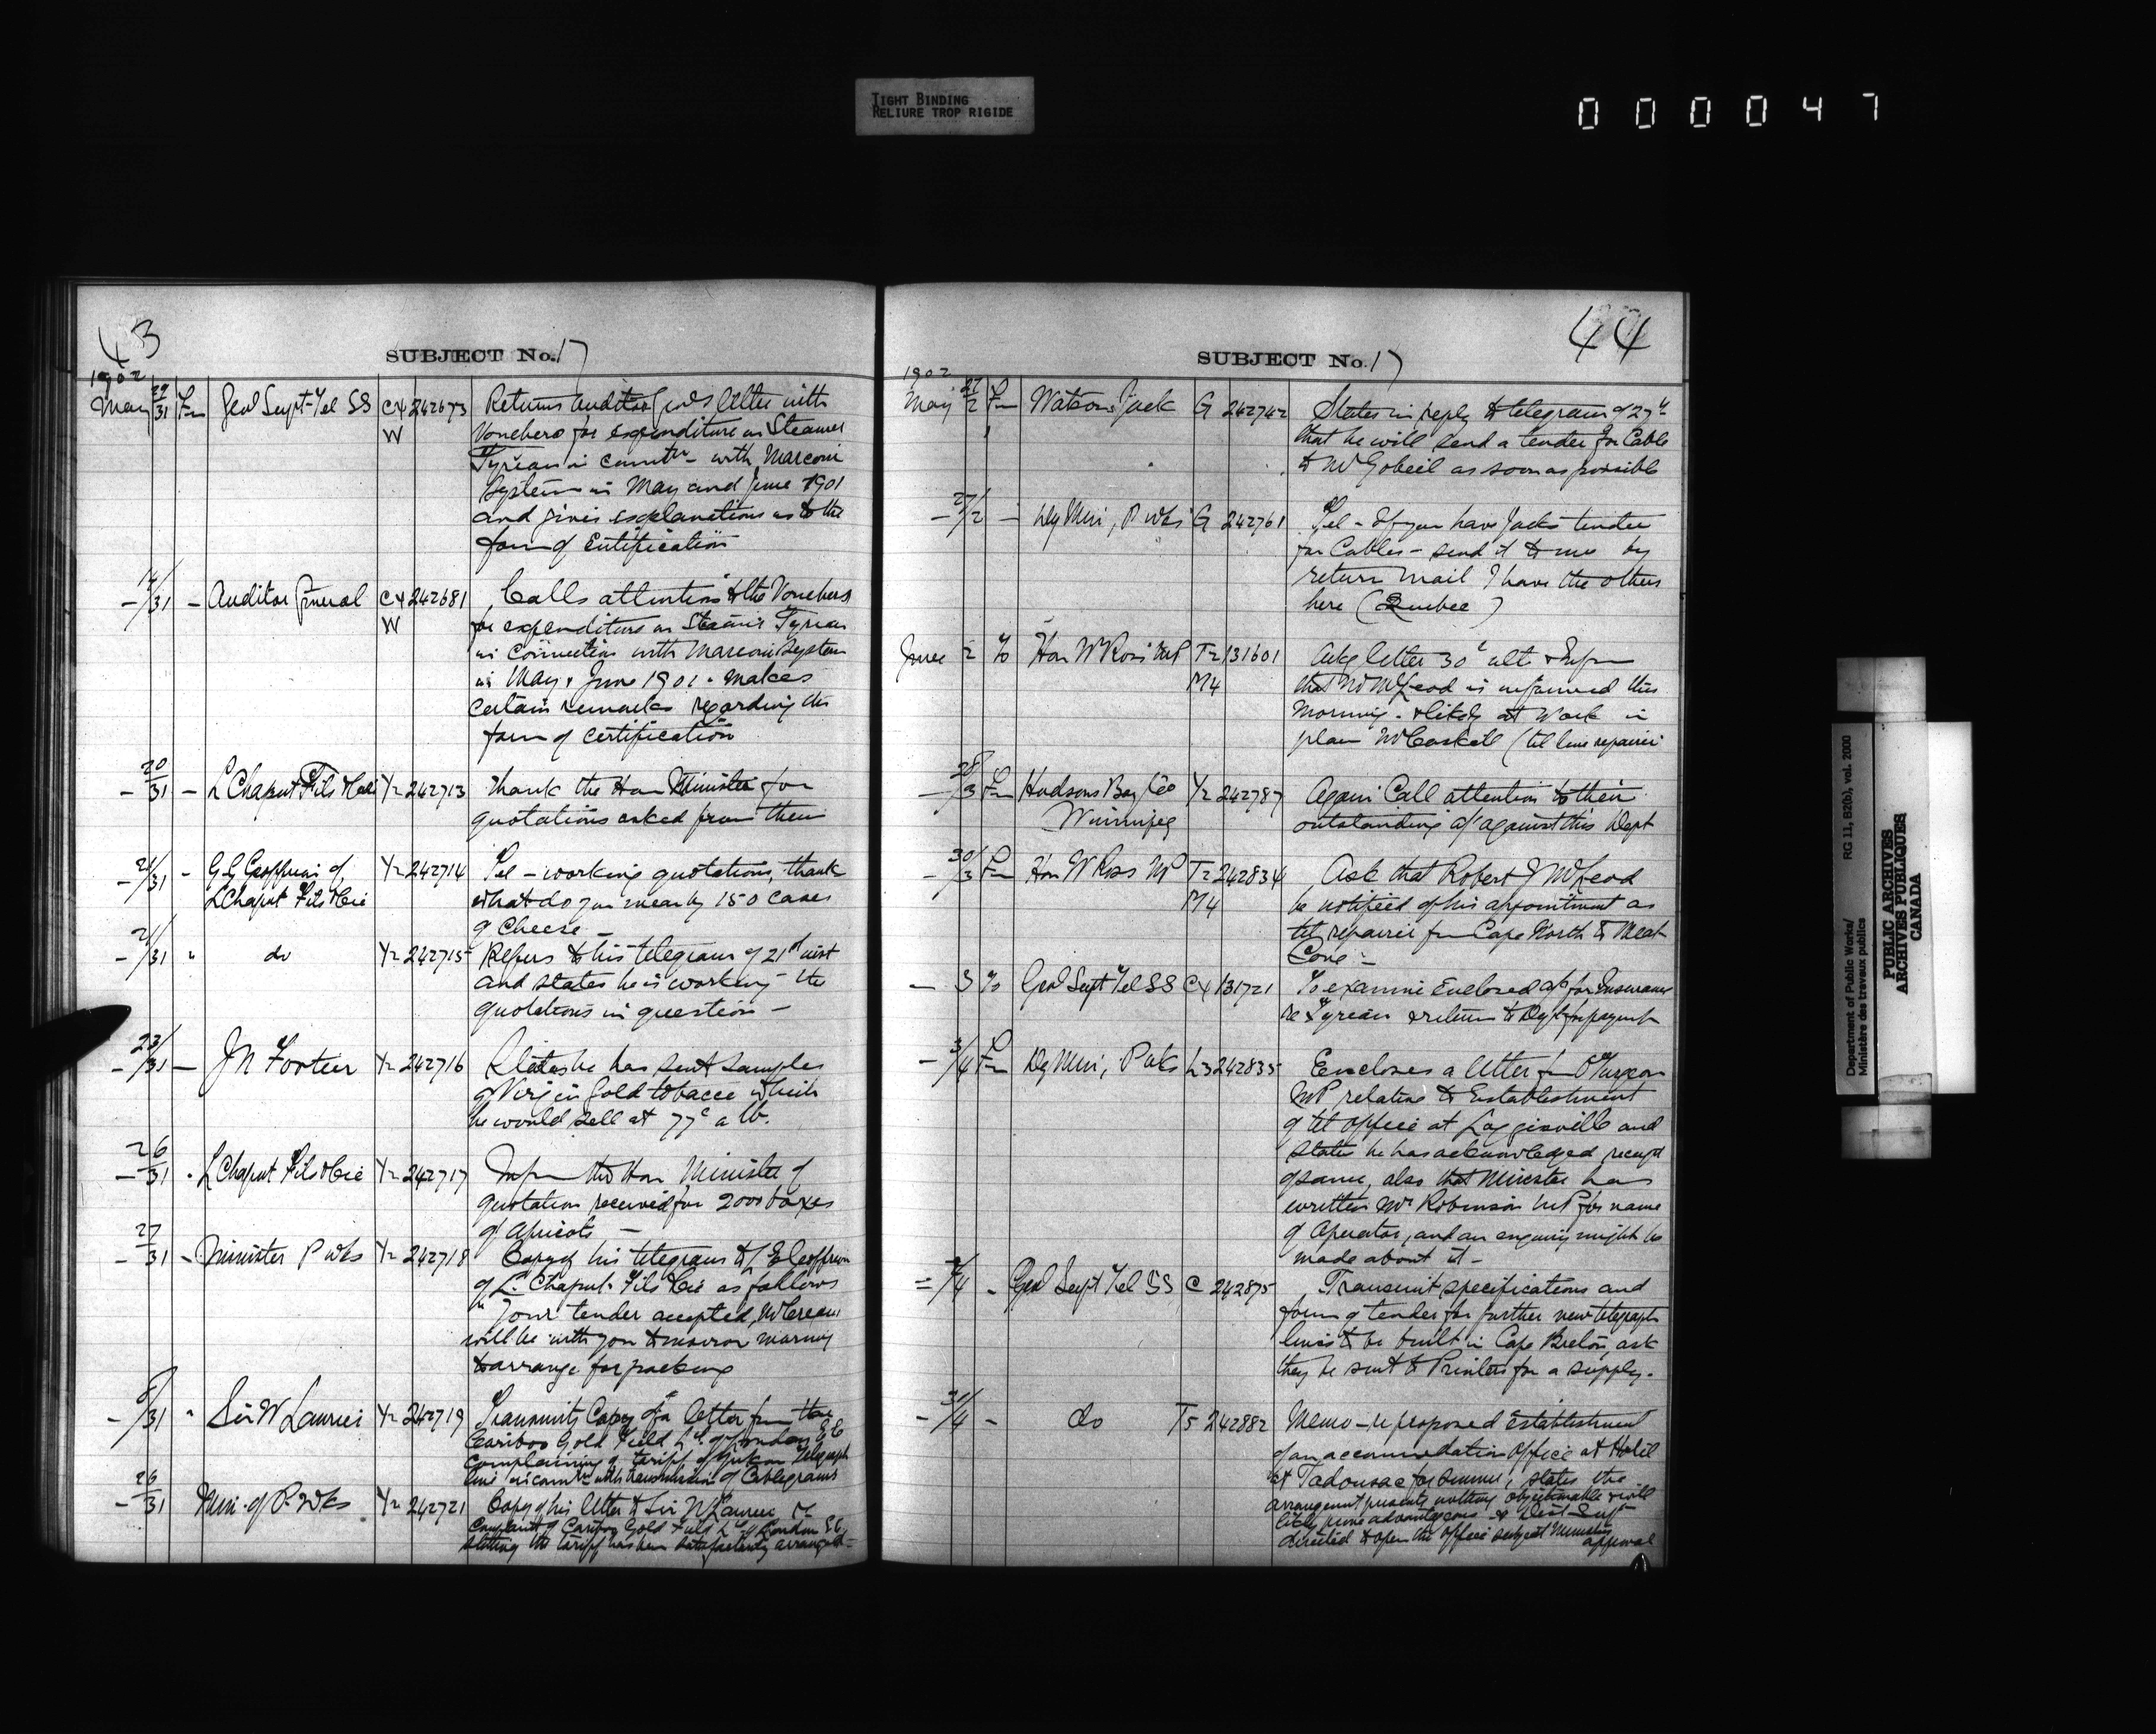 TIGHT BINDING
RELIURE TROP RIGIDE
000047
43
SUBJECT No. 17
1902
May 29/31 Fm Genl Supt Tel SS C4 W 242673 Returns Auditor Genls letter with
Vouchers for expenditure on Steamer
Tyrian in connctn with Marconi
System in May and June 1901
and gives explanations as to the
form of Certification
- 14/31 - Auditor General C4 W 242681 Calls attention to the Vouchers
for expenditure on Steamer Tyrian
in connection with Marconi System
in May & June 1901 - makes
certain remarks regarding the
form of certification
- 20/31 - L Chaput Fils & Cie Y2 242713 Thank the Hon Minister for
quotations asked from them
- 21/31 - G G Geoffrion of Y2 242714 Tel - working quotations, thank
L Chaput Fils & Cie what do you mean by 150 cases
of Cheese -
- 21/31 " do Y2 242715 Refers to his telegram of 21st inst
and states he is working the
quotations in question -
- 23/31 - J N Y2 242716 States he has sent samples
of Virgin Gold tobacco which
he would sell at 77c a lb.
- 26/31 " L Chaput Fils & Cie Y2 242717 Infm the Hon Minister of
quotation received for 2000 boxes
of Apricots -
- 27/31 - Minister P Wks Y2 242718 Copy of his telegram to Geoffrion
of L. Chaput Fils & Cie as follows
"Your tender accepted,
will be with you tomorrow morning
to arrange for packing
31 " Sir W Laurier Y2 242719 Transmits Copy of a letter from the
Cariboo Gold Field Ld of London E C
complaining of tariff of Yukon Telegraph
line in connctn with transmission of Cablegrams
- 26/31 Min. of P. Wks Y2 242721 Copy of his letter to Sir W Laurier re
Complaint of Cariboo Gold Field Ld of London E C
stating the tariff has been satisfactorily arranged -
44
SUBJECT No. 17
1902
May 27/2 Fm Watson Jack G 242742 States in reply to telegram of 27th
that he will send a tender for Cable
to Mr Gobeil as soon as possible
- 27/2 - Dy Min, P Wks G 242761 Tel - If you have Jacks tender
for Cables - send it to me by
return mail I have the others
here (Quebec)
June 2 To Hon W Ross MP T2 M4 131601 Ackg letter 30th ult & Infm
that Mr McLeod is informed this
morning - & likely at work in
place McCaskell (tel line repairer
- 28/3 Fm Hudsons Bay Co Y2 242787 Again Call attention to their
Winnipeg outstanding a/c against this Dept
- 30/3 Fm Hon W Ross MP T2 M4 242834 Ask that Robert J McLeod
be notified of his appointment as
tel repairer fm Cape North to Meat
Cove -
- 3 To Genl Supt Tel SS C4 131721 To examine Enclosed a/c for Insurance
re Tyrian & return to Dept for payment
- 3/4 Fm Dy Min, P Wks L3 242835 Encloses a letter fm O Turgeon
MP relative to Establishment
of tel office at Loggieville and
states he has acknowledged receipt
of same, also that Minister has
written Mr Robinson MP for name
of Operator, and an enquiry might be
made about it -
4 - Genl Supt Tel SS C 242875 Transmit specifications and
form of tender for further new telegraph
lines to be built in Cape Breton, ask
they be sent to Printers for a supply.
- 31/4 - do T5 242882 Memo - re proposed Establishment
of an accommodation Office at Hotel
at Tadousac for summer, states the
arrangement presents nothing objectionable & will
likely prove advantageous - & Dist Supt
directed to open the office subject Ministers
approval
Department of Public Works/
Ministère des travaux publics
RG 11, B2(b), vol. 2000
PUBLIC ARCHIVES
ARCHIVES PUBLIQUES
CANADA